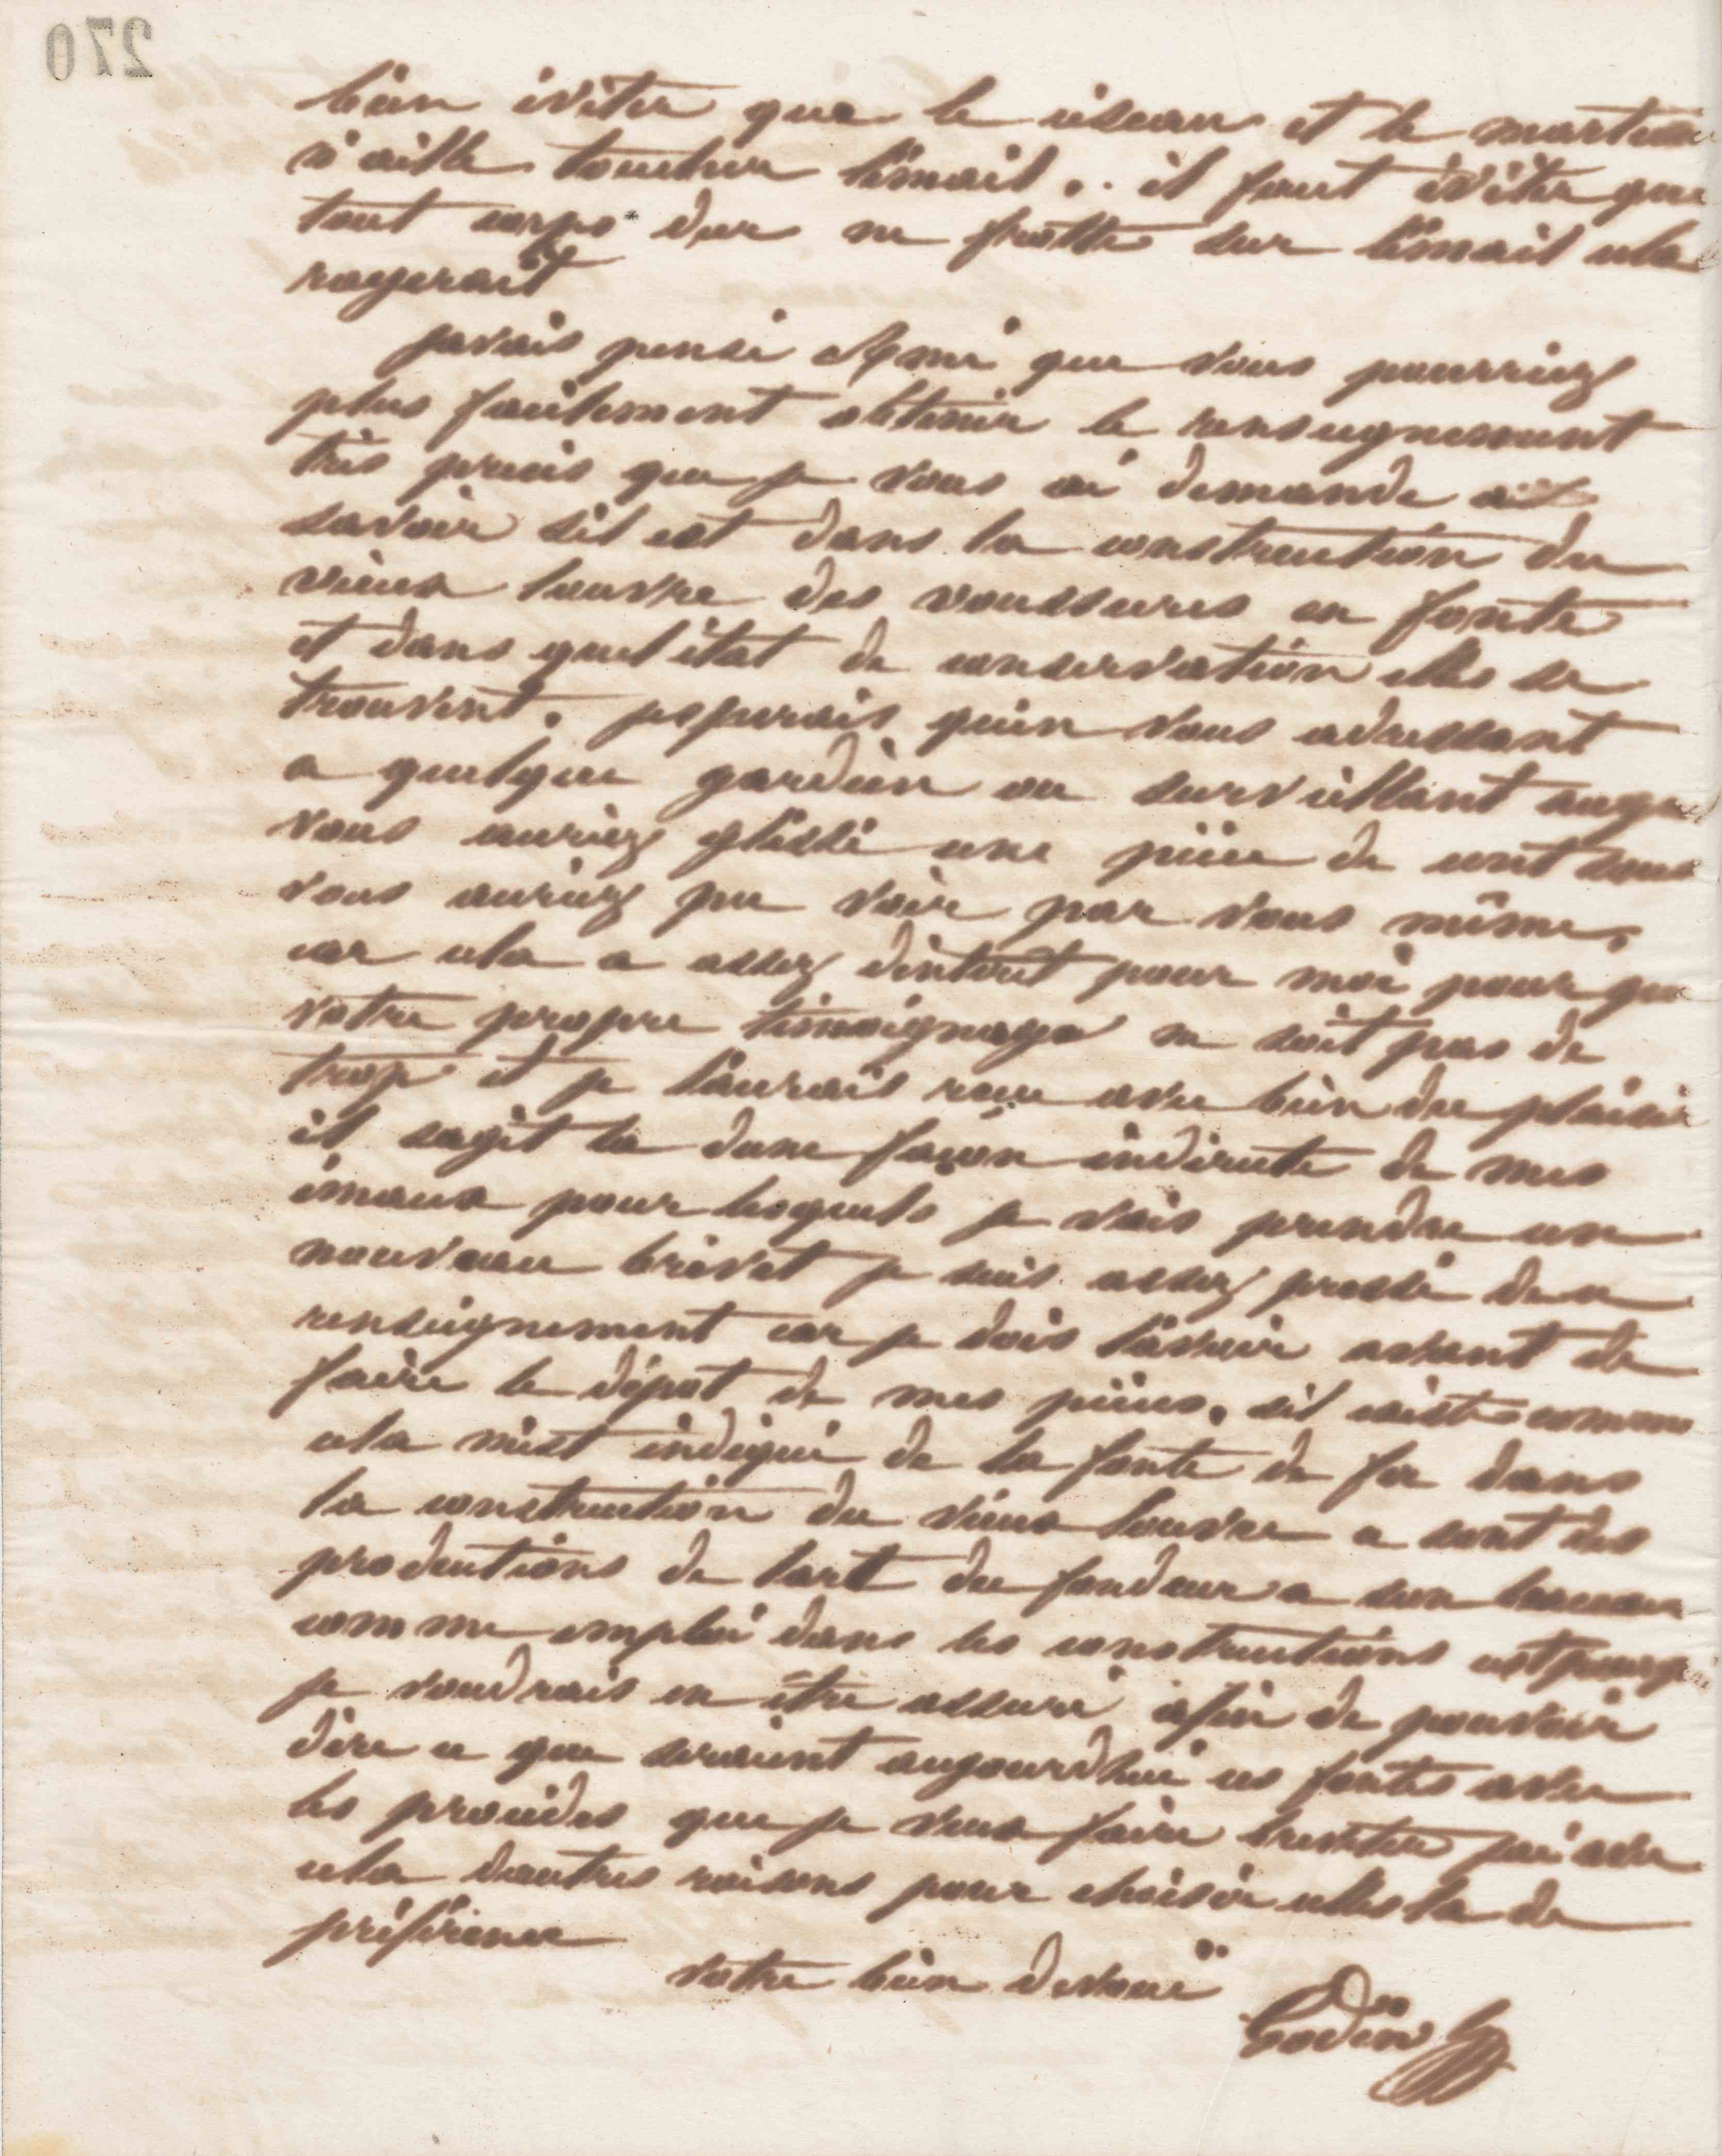 270
bien éviter que le ciseau et le marteau
n'aille toucher lémail. il faut éviter que
tout corps dur ne frotte sur lémail cela
rayerait
javais pensé Ami que vous pourriez
plus facilement obtenir le renseignement
très précis que je vous ai demandé
savoir sil est dans la construction du
vieux louvre des voussures en fonte
et dans quel état de conservation elles se
trouvent. jespérais quen vous adressant
a quelque gardien ou surveillant auquel
vous auriez glissé une pièce de cent sous
vous auriez pu voir par vous même,
car cela a assez dintérêt pour moi pour que
votre propre témoignage ne soit pas de
trop et je laurais reçu avec bien du plaisir
il sagit la dune façon indirecte de mes
émaux pour lesquels je vais prendre un
nouveau brevet je suis assez pressé du
renseignement car je dois lavoir avant de
faire le dépot de mes pièces. sil existe comme
cela mest indiqué de la fonte de fer dans
la construction du vieux louvre ce sont des
productions de lart du fondeur a son berceau
comme emploi dans les constructions cest pourquoi
je voudrais en être assuré afin de pouvoir
dire ce que seraient aujourdhui ces fontes avec
les procédés que je veux faire breveter jai avec
cela dautres raisons pour choisir celles la de
préférence
votre bien dévoué
Godin